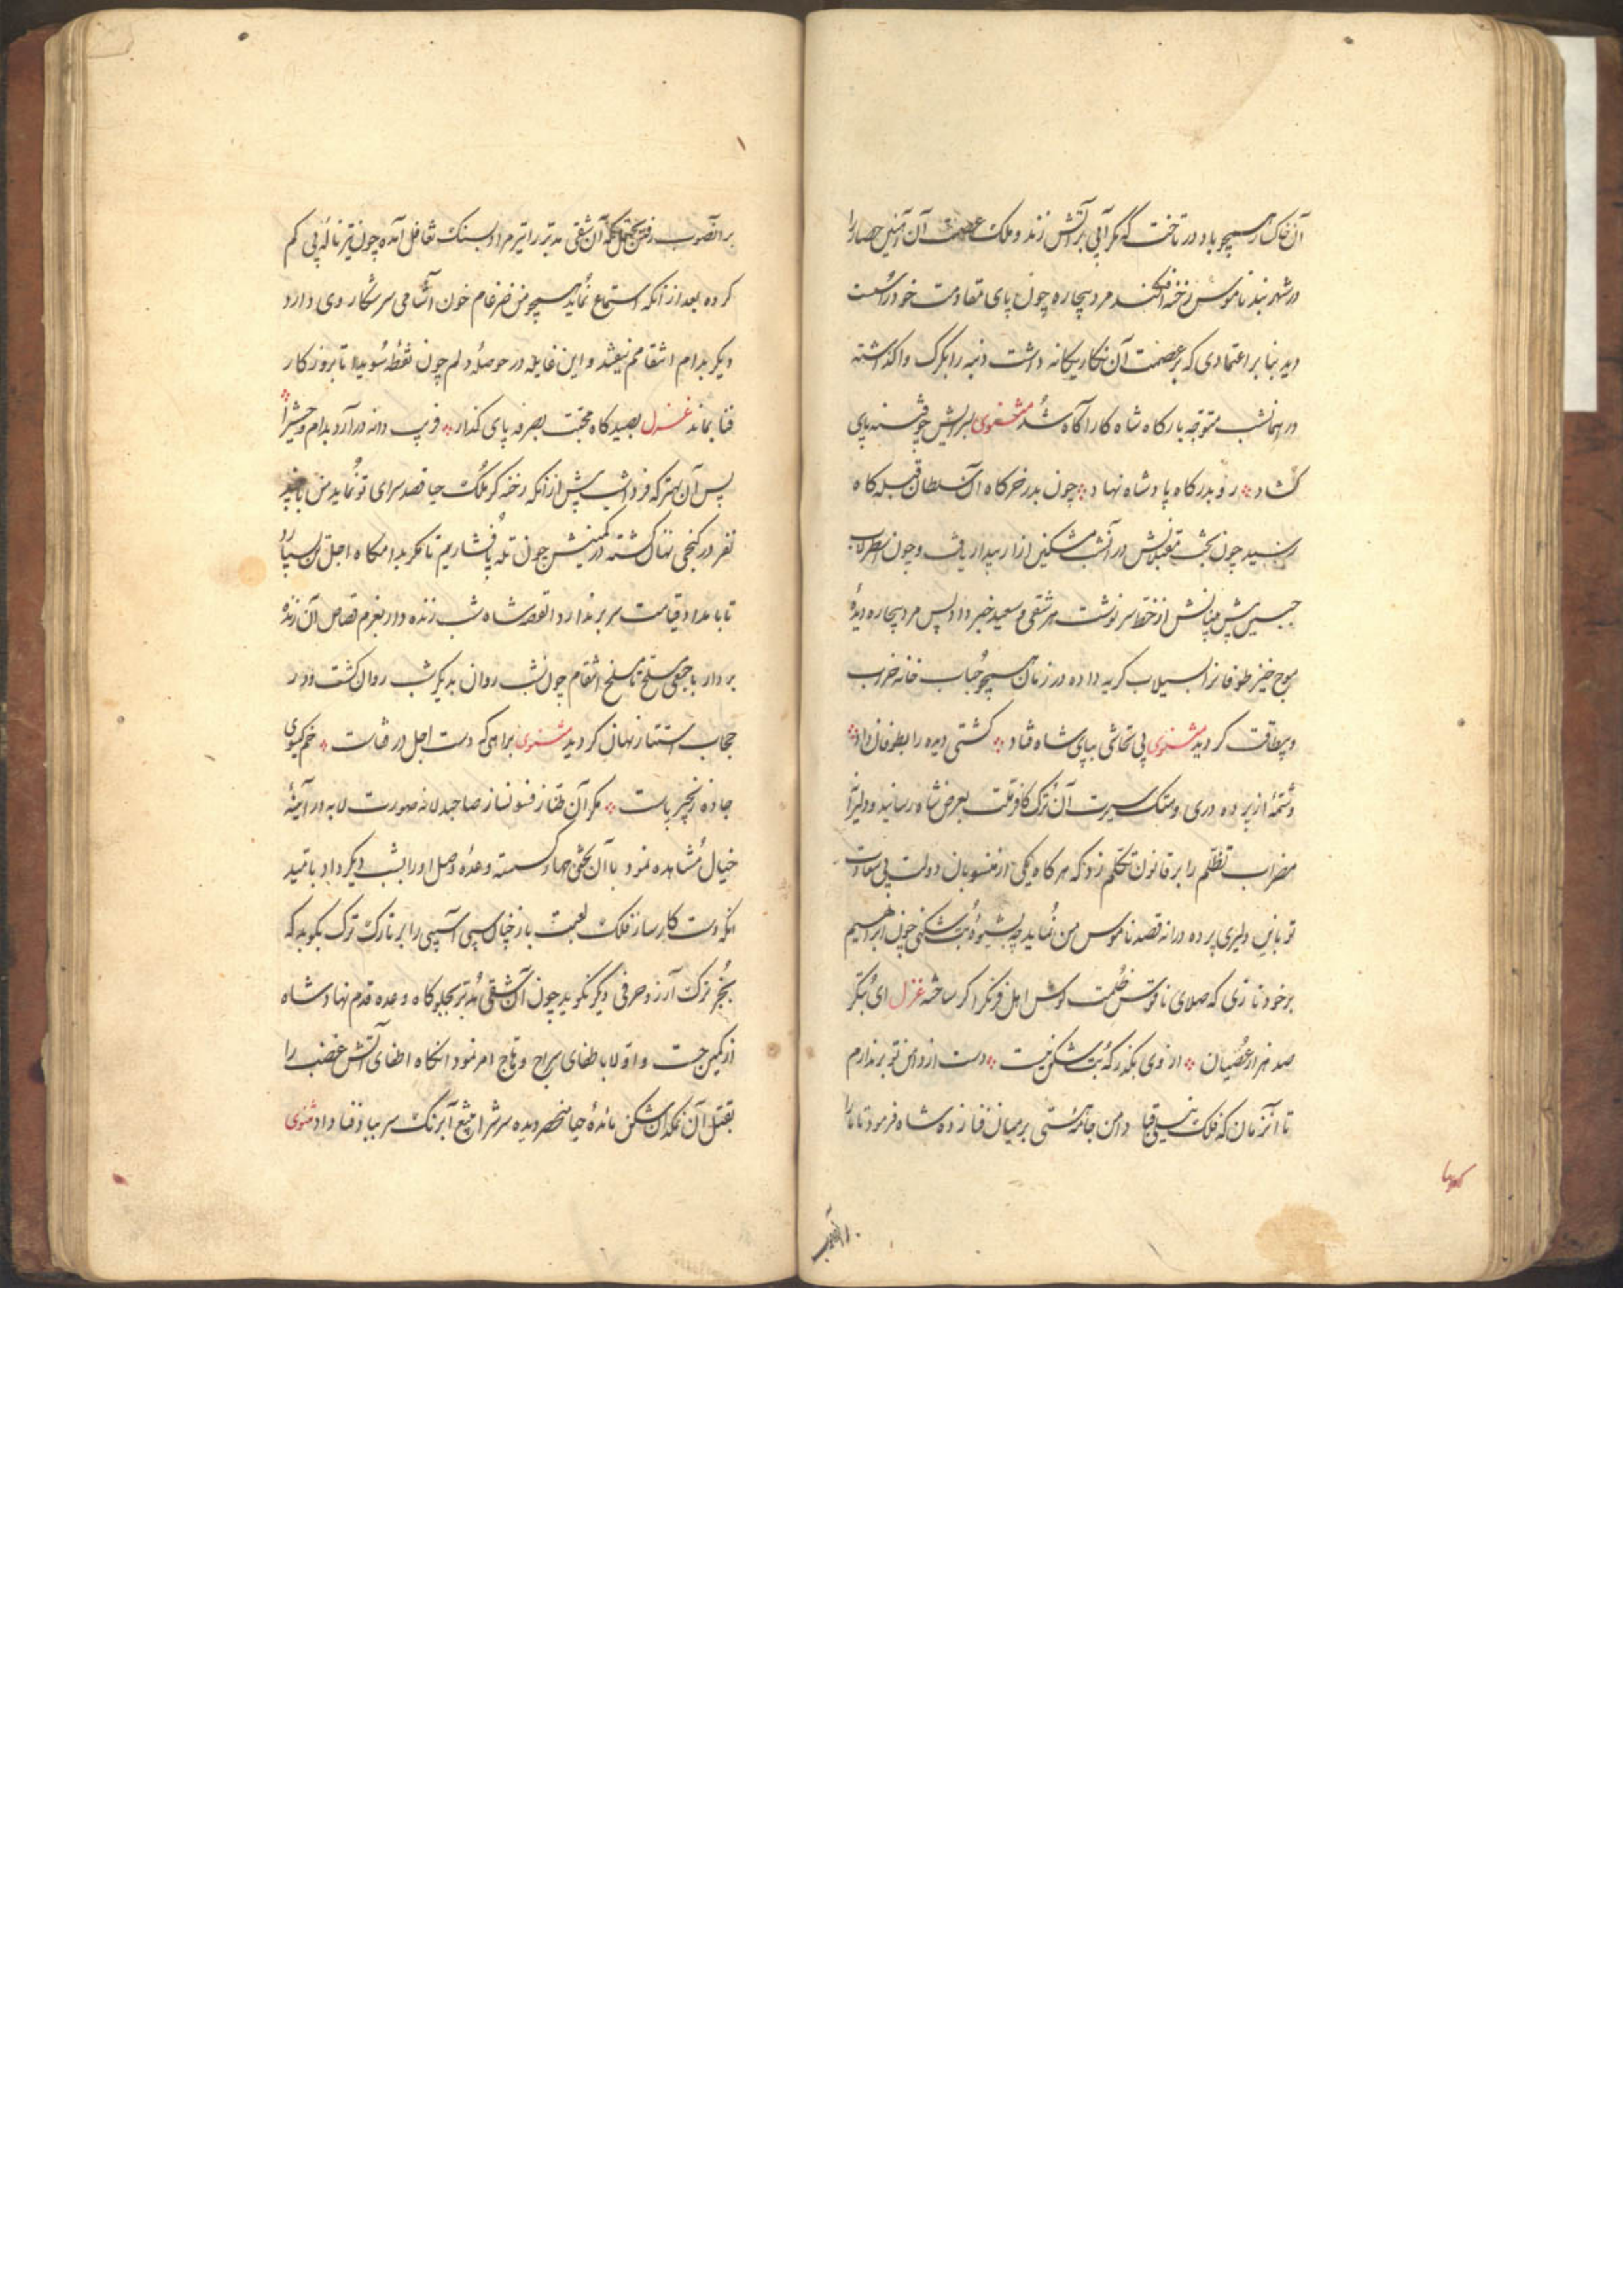 آن خاکسار همچو باد در تاخت که مکر آبی بر آتش زند و ملک عصمت آن آهنین حصار را
در شهر بند ناموس رخنه افکند مرد بیچاره چون پای مقاومت خود را سست
دید بنا بر اعتمادی که بر عصمت آن نکار یکانه داشت دنبه را بکرک واکذاشته
در همانشب متوجه بارکاه شاه کار آکاه شد مثنوی پای
کشاد رو بدرکاه پادشاه نهاد چون بدر خرکاه آن سلطان قبله کاه
رسید چون بخت مقبلانش در آنشب مشکین ازار بیدار یافت و چون اسطرلاب
جبین پیش از خط سرنوشت هر شقی و سعید خبر داد پس مرد بیچاره دیدهٔ
موج خیز طوفانرا بسیلاب کریه داده در زمان همچو حباب خانه خراب
و بیطاقت کردید مثنوی بی تحاشی بپای شاه فتاد کشتی دیده را بطوفان داد
و شمهٔ از پرده دری و هتک سیرت آن ترک کافر ملت بعرض شاه رسانید و دلیرا
مضراب تظلم را بر قانون تکلم زد که هر کاه یکی از منسوبان دولت بی سعادت
تو باین دلیری پرده درانه قصد ناموس من نماید چه بشیوهٔ بت شکنی چون ابراهیم
بر خود نازی که صلای ناقوس ظلمت کوش اهل فرنک را کر ساخته غزل ای بتکر
صد هزار عصیان از وی بکذر که بت شکن نیست دست از دامن تو بر ندارم
تا آنزمان که فلک نیلی قبا دامن جامهٔ هستی بر میان فنا زده شاه فرمود تا ما را
بر آنصوب
بر آنصوب رفتن آن شقی مدبر را تیر مراد بسنک تغافل آمده چون تیر ناله پی کم
کرده بعد از آنکه استماع نماید همچو من ضرغام خون آشامی سر شکار وی دارد
دیکر بدام انتقامم نیفتد و این غایله در حوصلهٔ دلم چون نقطهٔ سویدا تا بروز کار
فنا بماند غزل بصید کاه محبت بصرفه پای کذار فریب دانه در آرد بدام وحشی را
پس آن بهتر که فردا شب پیش از آنکه رخنه کر ملک حیا قصد سرای تو نماید من با چند
نفر در کنجی نهان کشته در کمینش چون تله پا فشاریم تا مکر بدامکاه اجل
تا بامداد قیامت سر بر ندارد القصه شاه شب زنده دار بعزم قصاص آن زنده
بردار با جمعی مسلح تا مسلخ انتقام چون شب روان بدیکر شب روان کشت و در
حجاب استتار نهان کردید مثنوی براهی که دست اجل در قفاست خم کیسوی
جاده زنجیر پاست مکر آن طناز فسونساز صاحبدلانه صورت لابه در آینهٔ
خیال مشاهده نمود با آن بختی مهار کسسته وعدهٔ وصل او را بشب دیکر داد بامید
آنکه دست کارساز فلک لعبت باز خیال سپی آسیبی را بر تارک ترک بکوبد که
بجز ترک آرزو حرفی دیکر نکوید چون آن شقی مدبر بجلوکاه وعده قدم نهاد شاه
از کمین جست و اولا باطفای سراج وهاج امر نمود آنکاه اطفای آتش غضب را
بقتل آن نمکدان شکن مائدهٔ حیا منحصر دیده سرش را از تیغ آبرنک سر بباد فنا داد مثنوی